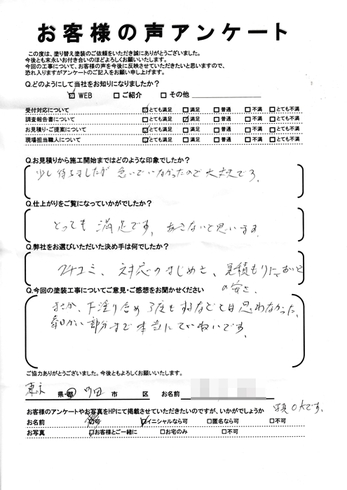 お客様の声アンケート
この度は、塗り替え塗装のご依頼をいただき誠にありがとうございました。
今後とも末永いお付き合いのほどよろしくお願いいたします。
今回の工事について、お客様の声を今後に反映させていただきたいと思いますので、
恐れ入りますがアンケートのご記入をお願い申し上げます。
Q.どのようにして当社をお知りになりましたか?
☑WEB □ご紹介 □その他
受付対応について ☑とても満足 □満足 □普通 □不満 □とても不満
調査報告書について □とても満足 ☑満足 □普通 □不満 □とても不満
お見積り・ご提案について ☑とても満足 □満足 □普通 □不満 □とても不満
現場担当職人について ☑とても満足 □満足 □普通 □不満 □とても不満
Q.お見積りから施工開始まではどのような印象でしたか?
少し待ちましたが急いでいなかったので大丈夫です。
Q.仕上がりをご覧になっていかがでしたか?
とっても満足です。
Q.弊社をお選びいただいた決め手は何でしたか?
口コミ、対応のまじめさ、見積もり
の安さ
Q.今回の塗装工事についてご意見・ご感想をお聞かせください
まさか、下塗り含め3度も なんて思わなかった。
細かい部分まで本当にていねいです。
ご協力ありがとうございました。今後ともよろしくお願いいたします。
東京 県・都 町田 市 区 お名前
お客様のアンケートやお写真をHPにて掲載させていただきたいのですが、いかがでしょうか 写真OKです。
お名前 □可 ☑イニシャルなら可 □匿名なら可 □不可
お写真 □お客様とご一緒に □お宅のみ □不可